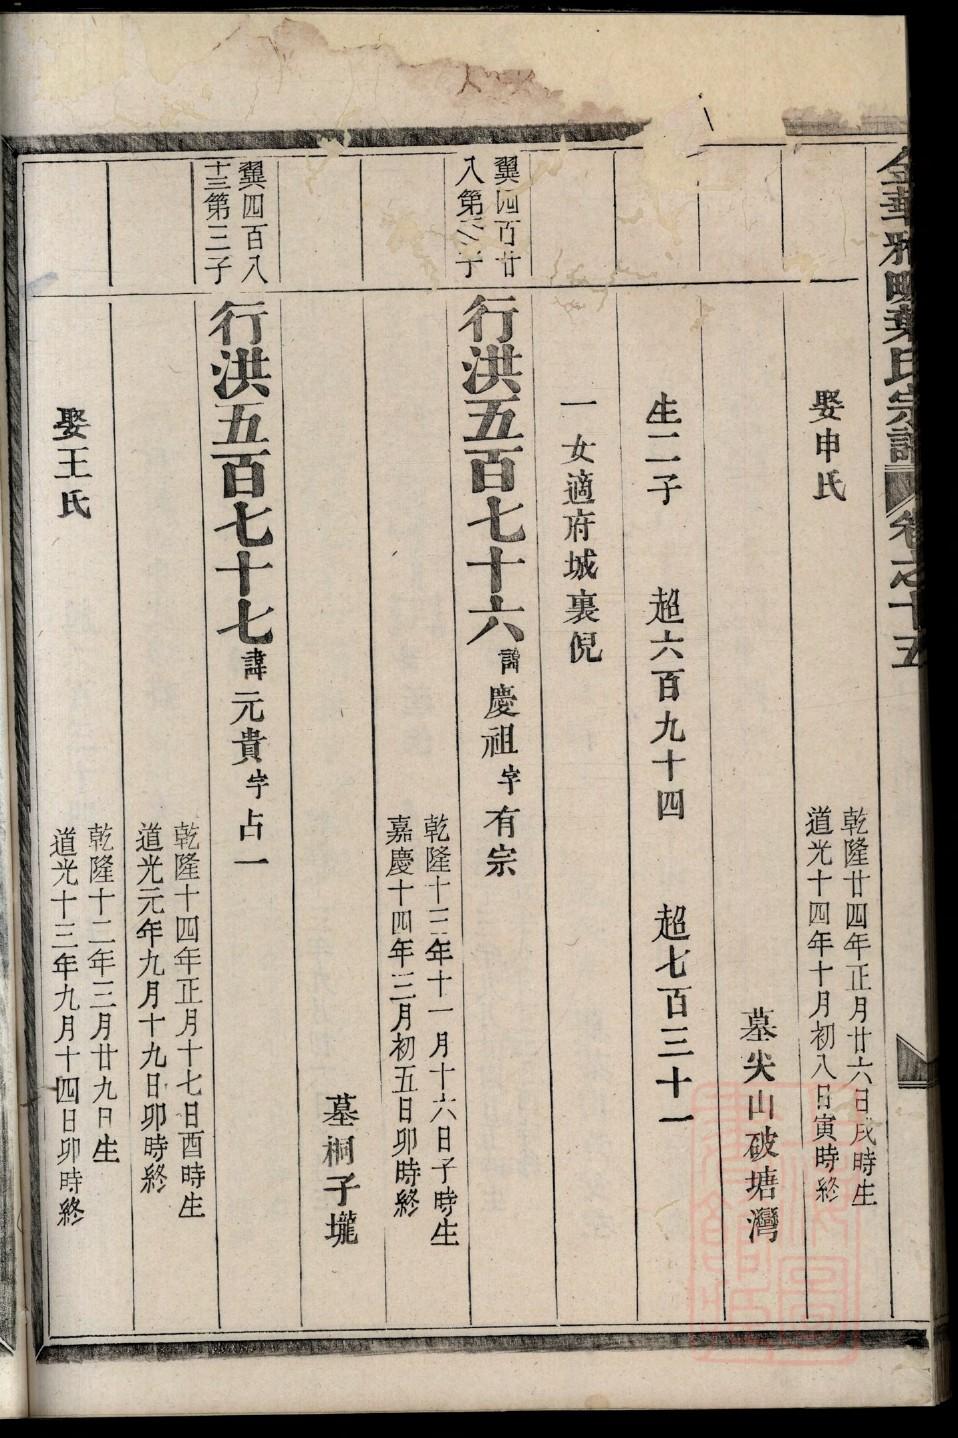 金華雅畈葉氏宗譜 卷之十五
娶申氏
乾隆廿四年正月廿六日戌時生
道光十四年十月初八日寅時終
墓尖山破塘灣
生二子 超六百九十四 超七百三十一
一女適府城裏倪
翼四百廿
八第 子
行洪五百七十六 諱慶祖 字有宗
乾隆十三年十一月十六日子時生
嘉慶十四年三月初五日卯時終
墓桐子壠
翼四百八
十三第三子
行洪五百七十七 諱元貴 字占一
乾隆十四年正月十七日酉時生
道光元年九月十九日卯時終
娶王氏
乾隆十二年三月廿九日生
道光十三年九月十四日卯時終